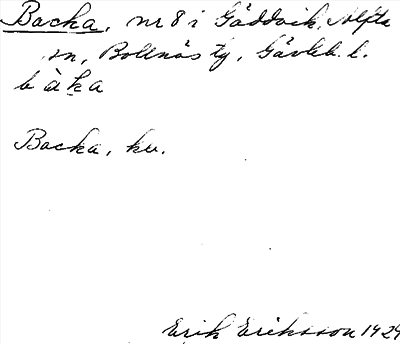 Backa, nr 8 i Gäddvik, Alfta
sn, Bollnäs tg, Gävleb. l.
b à k a
Backa, kv.
Erik Eriksson 1929